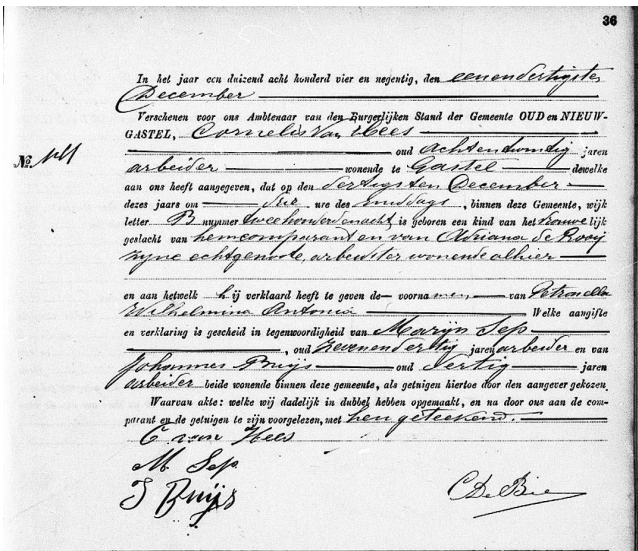 36
In het jaar een duizend acht honderd vier en negentig, den eenendertigsten
December
Verschenen voor ons Ambtenaar van den Burgerlijken Stand der Gemeente OUD en NIEUW-
GASTEL, Cornelis van Hees
No. oud achtentwintig jaren
arbeider wonende te Gastel dewelke
aan ons heeft aangegeven, dat op den dertigsten December
dezes jaars om drie ure des middags, binnen deze Gemeente, wijk
letter B nummer tweehonderdenacht, is geboren een kind van het vrouwelijk
geslacht van hem comparant en van Adriana de Rooij
zijne echtgenoote, arbeidster wonende alhier
en aan hetwelk hij verklaard heeft te geven de voornamen van Petronella
Wilhelmina Antonia Welke aangifte
en verklaring is gescheid in tegenwoordigheid van Marijn Sep
, oud zevenendertig jaren arbeider en van
Johannes Buijs oud dertig jaren
arbeider beide wonende binnen deze gemeente, als getuigen hiertoe door den aangever gekozen.
Waarvan akte: welke wij dadelijk in dubbel hebben opgemaakt, en na door ons aan de com-
parant en de getuigen te zijn voorgelezen, met hen geteekend.
C van Hees
M Sep
J Buijs
C De Bie